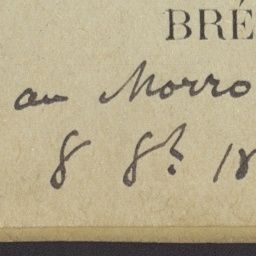 BRÉ
au Morro
8 8h 18